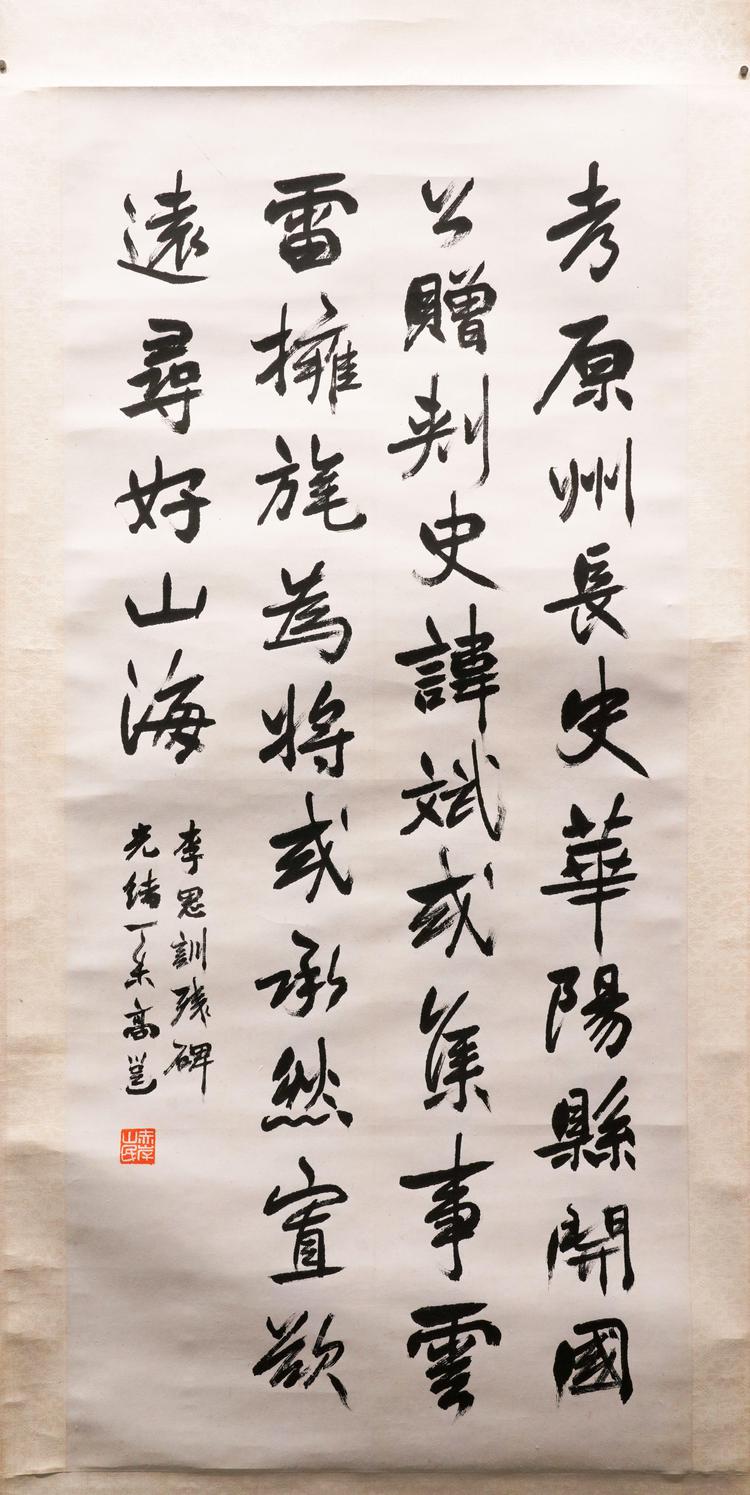 考原州長史華陽縣開國
公贈刾史諱斌或集事雲
雷擁旄為將或承然置欲
遠尋好山海
李思訓殘碑
光緒丁未高邕
赤岸山民